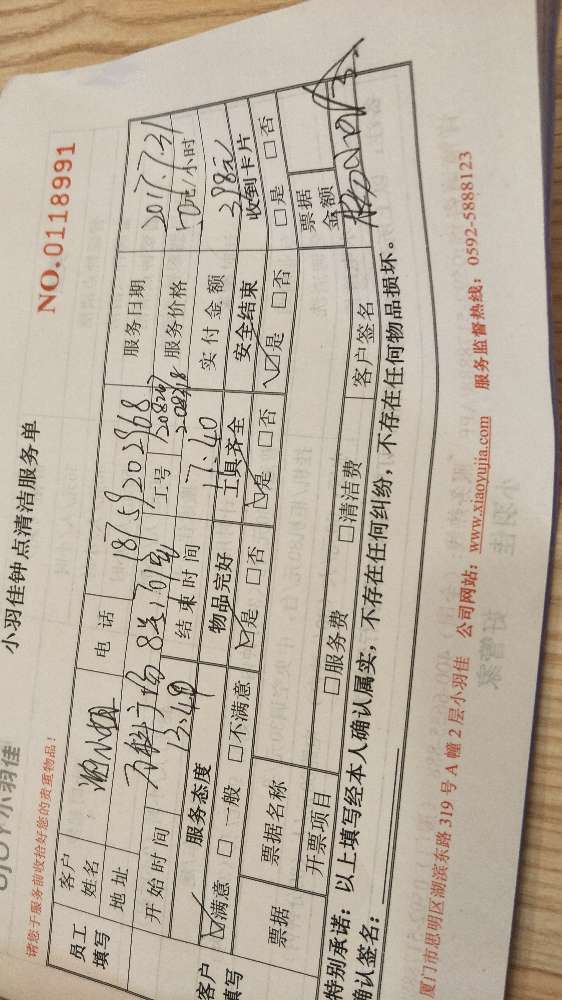 小羽佳
小羽佳钟点清洁服务单
请您于服务前收拾好您的贵重物品！
NO.0118991
员工填写 客户姓名 小姐 电话 服务日期 2017.7.31
地址 万科广场 服务价格 70元/小时
开始时间 13:40 结束时间 17:40 工号 实付金额 398元
客户填写 服务态度 物品完好 工具齐全 安全结束 收到卡片
☑满意 □一般 □不满意 ☑是 □否 ☑是 □否 ☑是 □否 □是 □否
票据 票据名称 票据金额
开票项目 □服务费 □清洁费 客户签名
特别承诺：以上填写经本人确认属实，不存在任何纠纷，不存在任何物品损坏。
确认签名：
厦门市思明区湖滨东路319号A幢2层小羽佳 公司网站：www.xiaoyujia.com 服务监督热线：0592-5888123